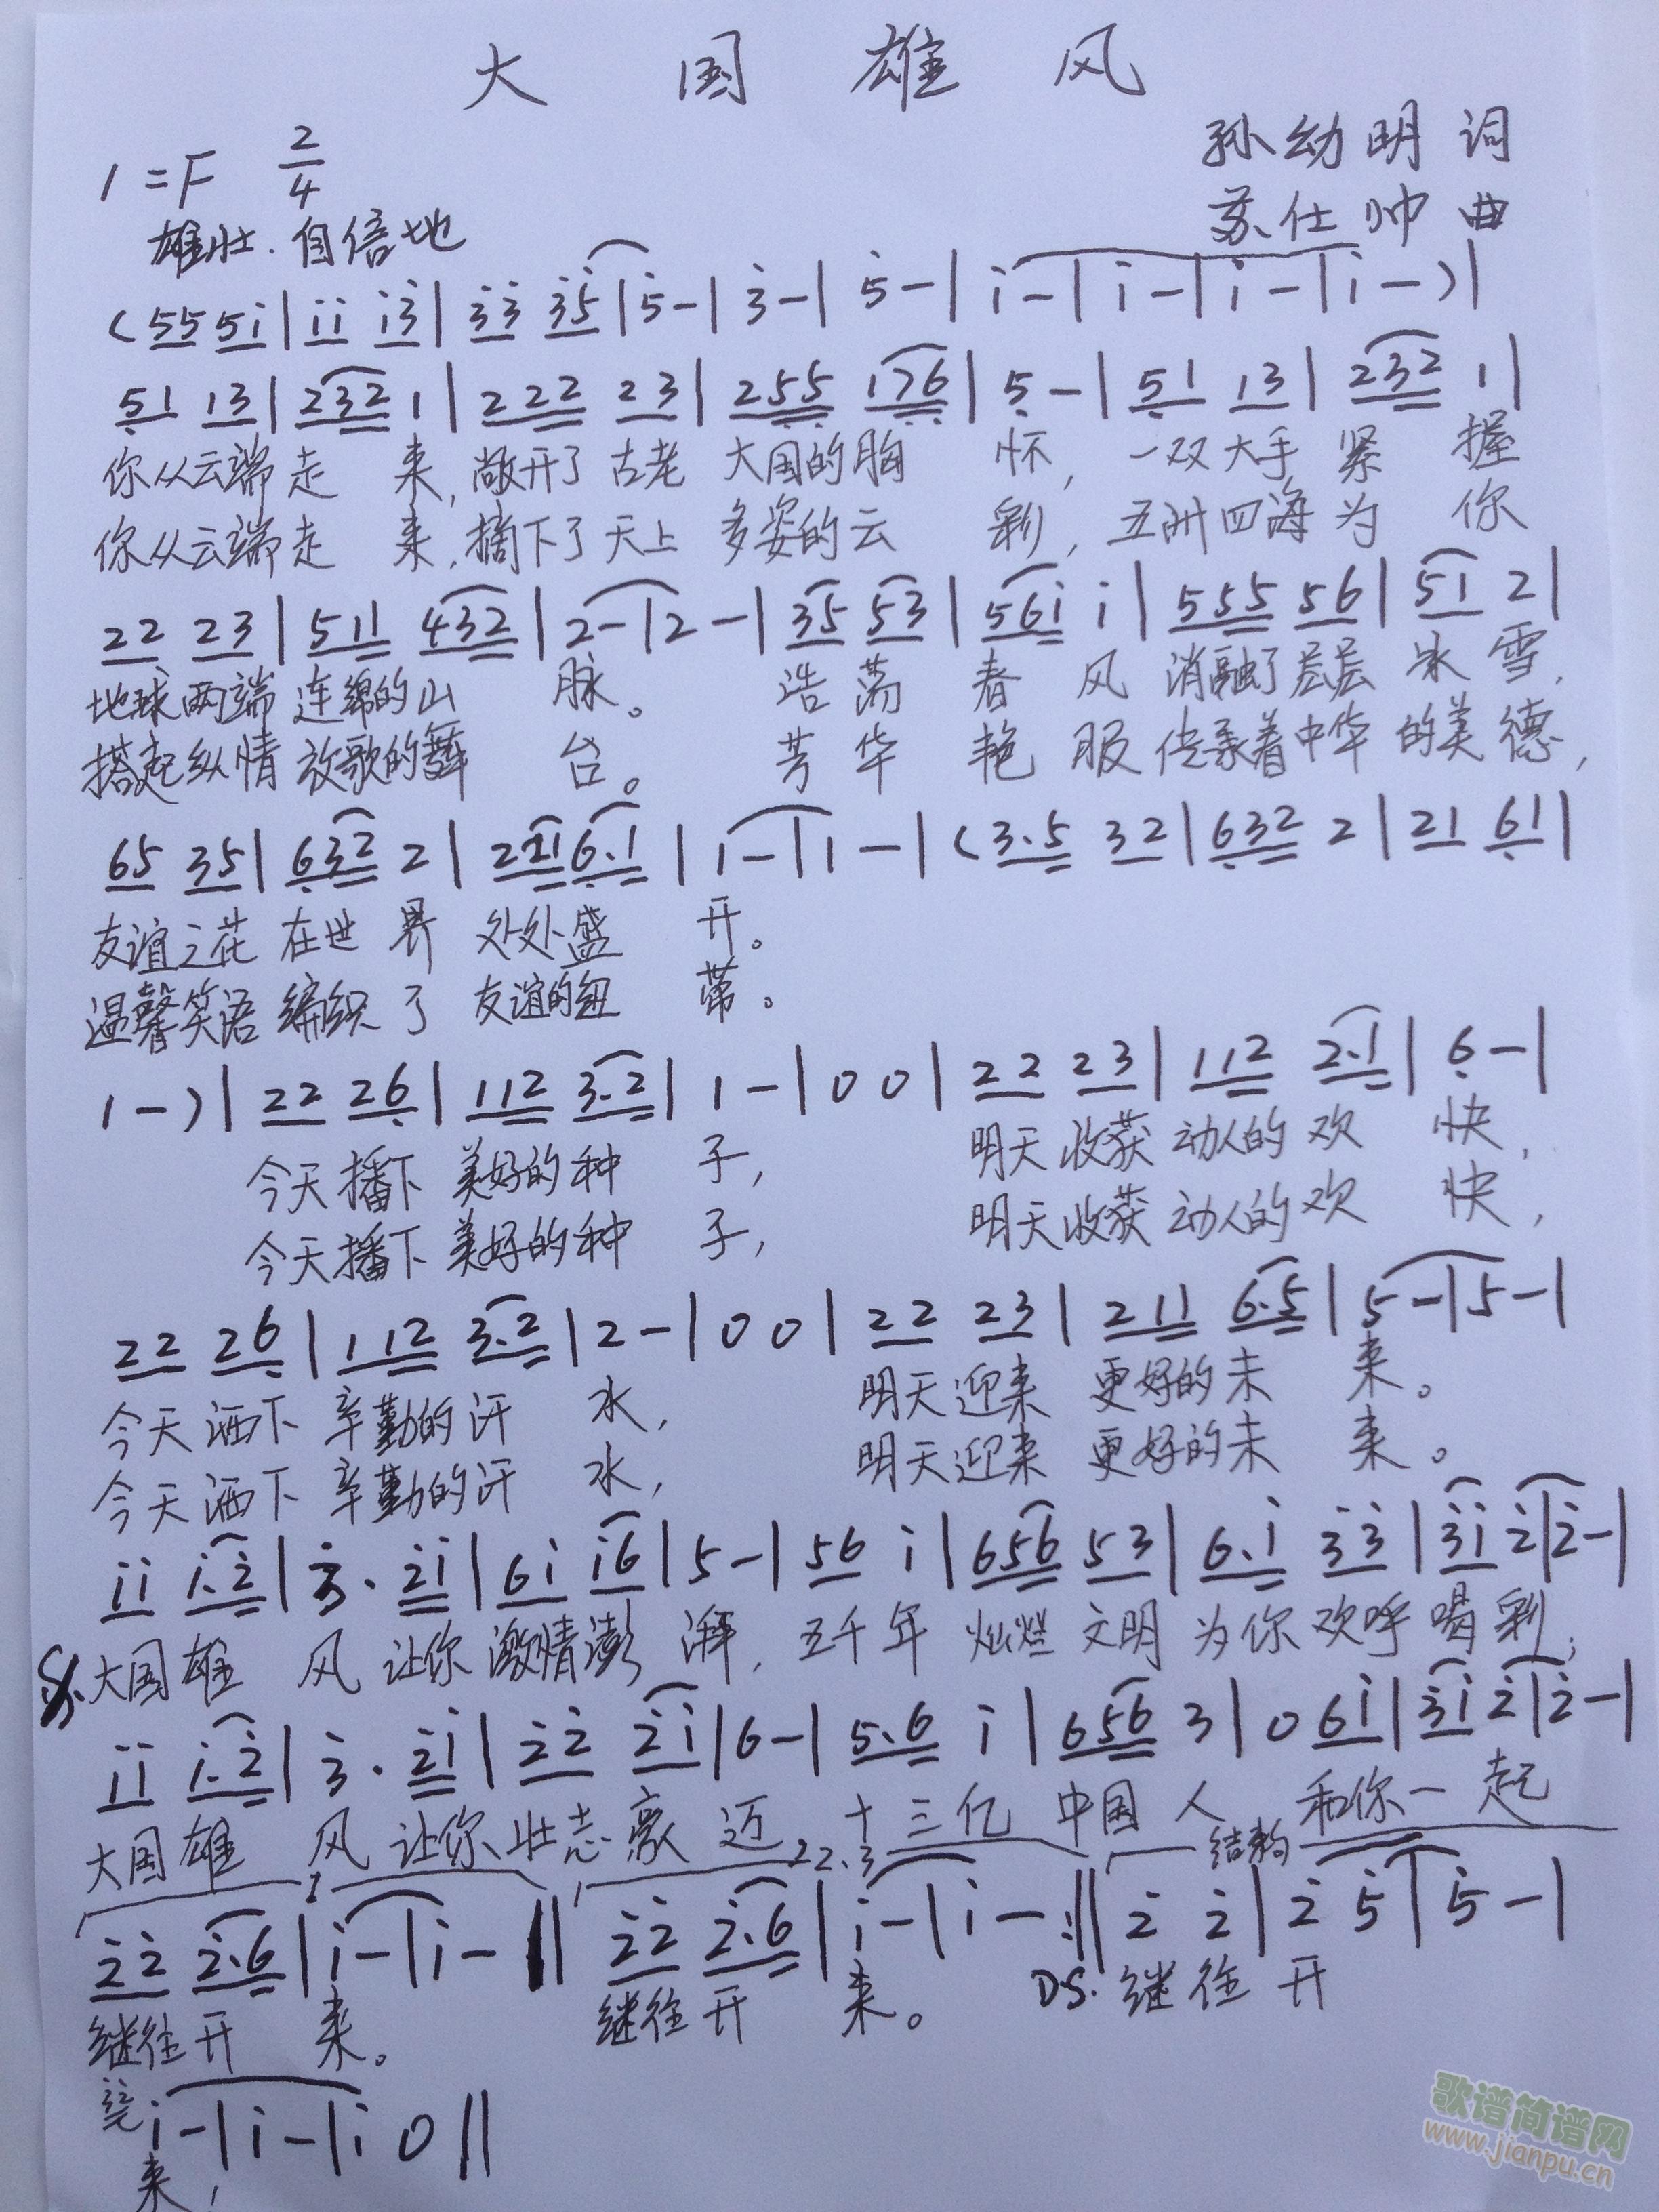 大国雄风
孙幼明 词
1=F 2/4
苏仕帅 曲
雄壮.自信地
(55 5i|ii i3|33 35|5-|3-|5-|i-|i-|i-|i-)|
51 13|232 1|222 23|255 176|5-|51 13|232 1|
你从云端走 来,敞开了古老 大国的胸 怀,一双大手紧 握
你从云端走 来,摘下了天上 多姿的云 彩,五洲四海为 你
22 23|511 432|2-|2-|35 53|56i i|555 56|51 2|
地球两端 连绵的山 脉。 浩荡 春 风 消融了层层 冰雪,
搭起纵情 放歌的舞 台。 芳华 艳 服 传承着中华 的美德,
65 35|632 2|211 6.1|1-|1-|(3.5 32|632 2|21 61|
友谊之花 在世界 处处盛 开。
温馨笑语 编织了 友谊的纽 带。
1-)|22 26|112 3.2|1-|00|22 23|112 2.1|6-|
今天播下 美好的种 子, 明天收获 动人的欢 快,
今天播下 美好的种 子, 明天收获 动人的欢 快,
22 26|112 3.2|2-|00|22 23|211 6.5|5-|5-|
今天洒下 辛勤的汗 水, 明天迎来 更好的未 来。
今天洒下 辛勤的汗 水, 明天迎来 更好的未 来。
ii i.2|3. 2i|6i i6|5-|56 i|656 53|6.i 33|3i 2|2-|
大国雄 风 让你激情澎 湃,五千年 灿烂文明 为你欢呼喝彩;
ii i.2|3. 2i|22 2i|6-|5.6 i|656 3|0 6i|3i 2|2-|
大国雄 风 让你壮志豪 迈,十三亿 中国人 和你一起
1 2.3 结构
22 2.6|i-|i-‖22 2.6|i-|i-:‖2 2|2 5|5-|
继往开 来。 继往开 来。 DS. 继往开
i-|i-|i 0‖
来,
歌谱简谱网
www.jianpu.cn